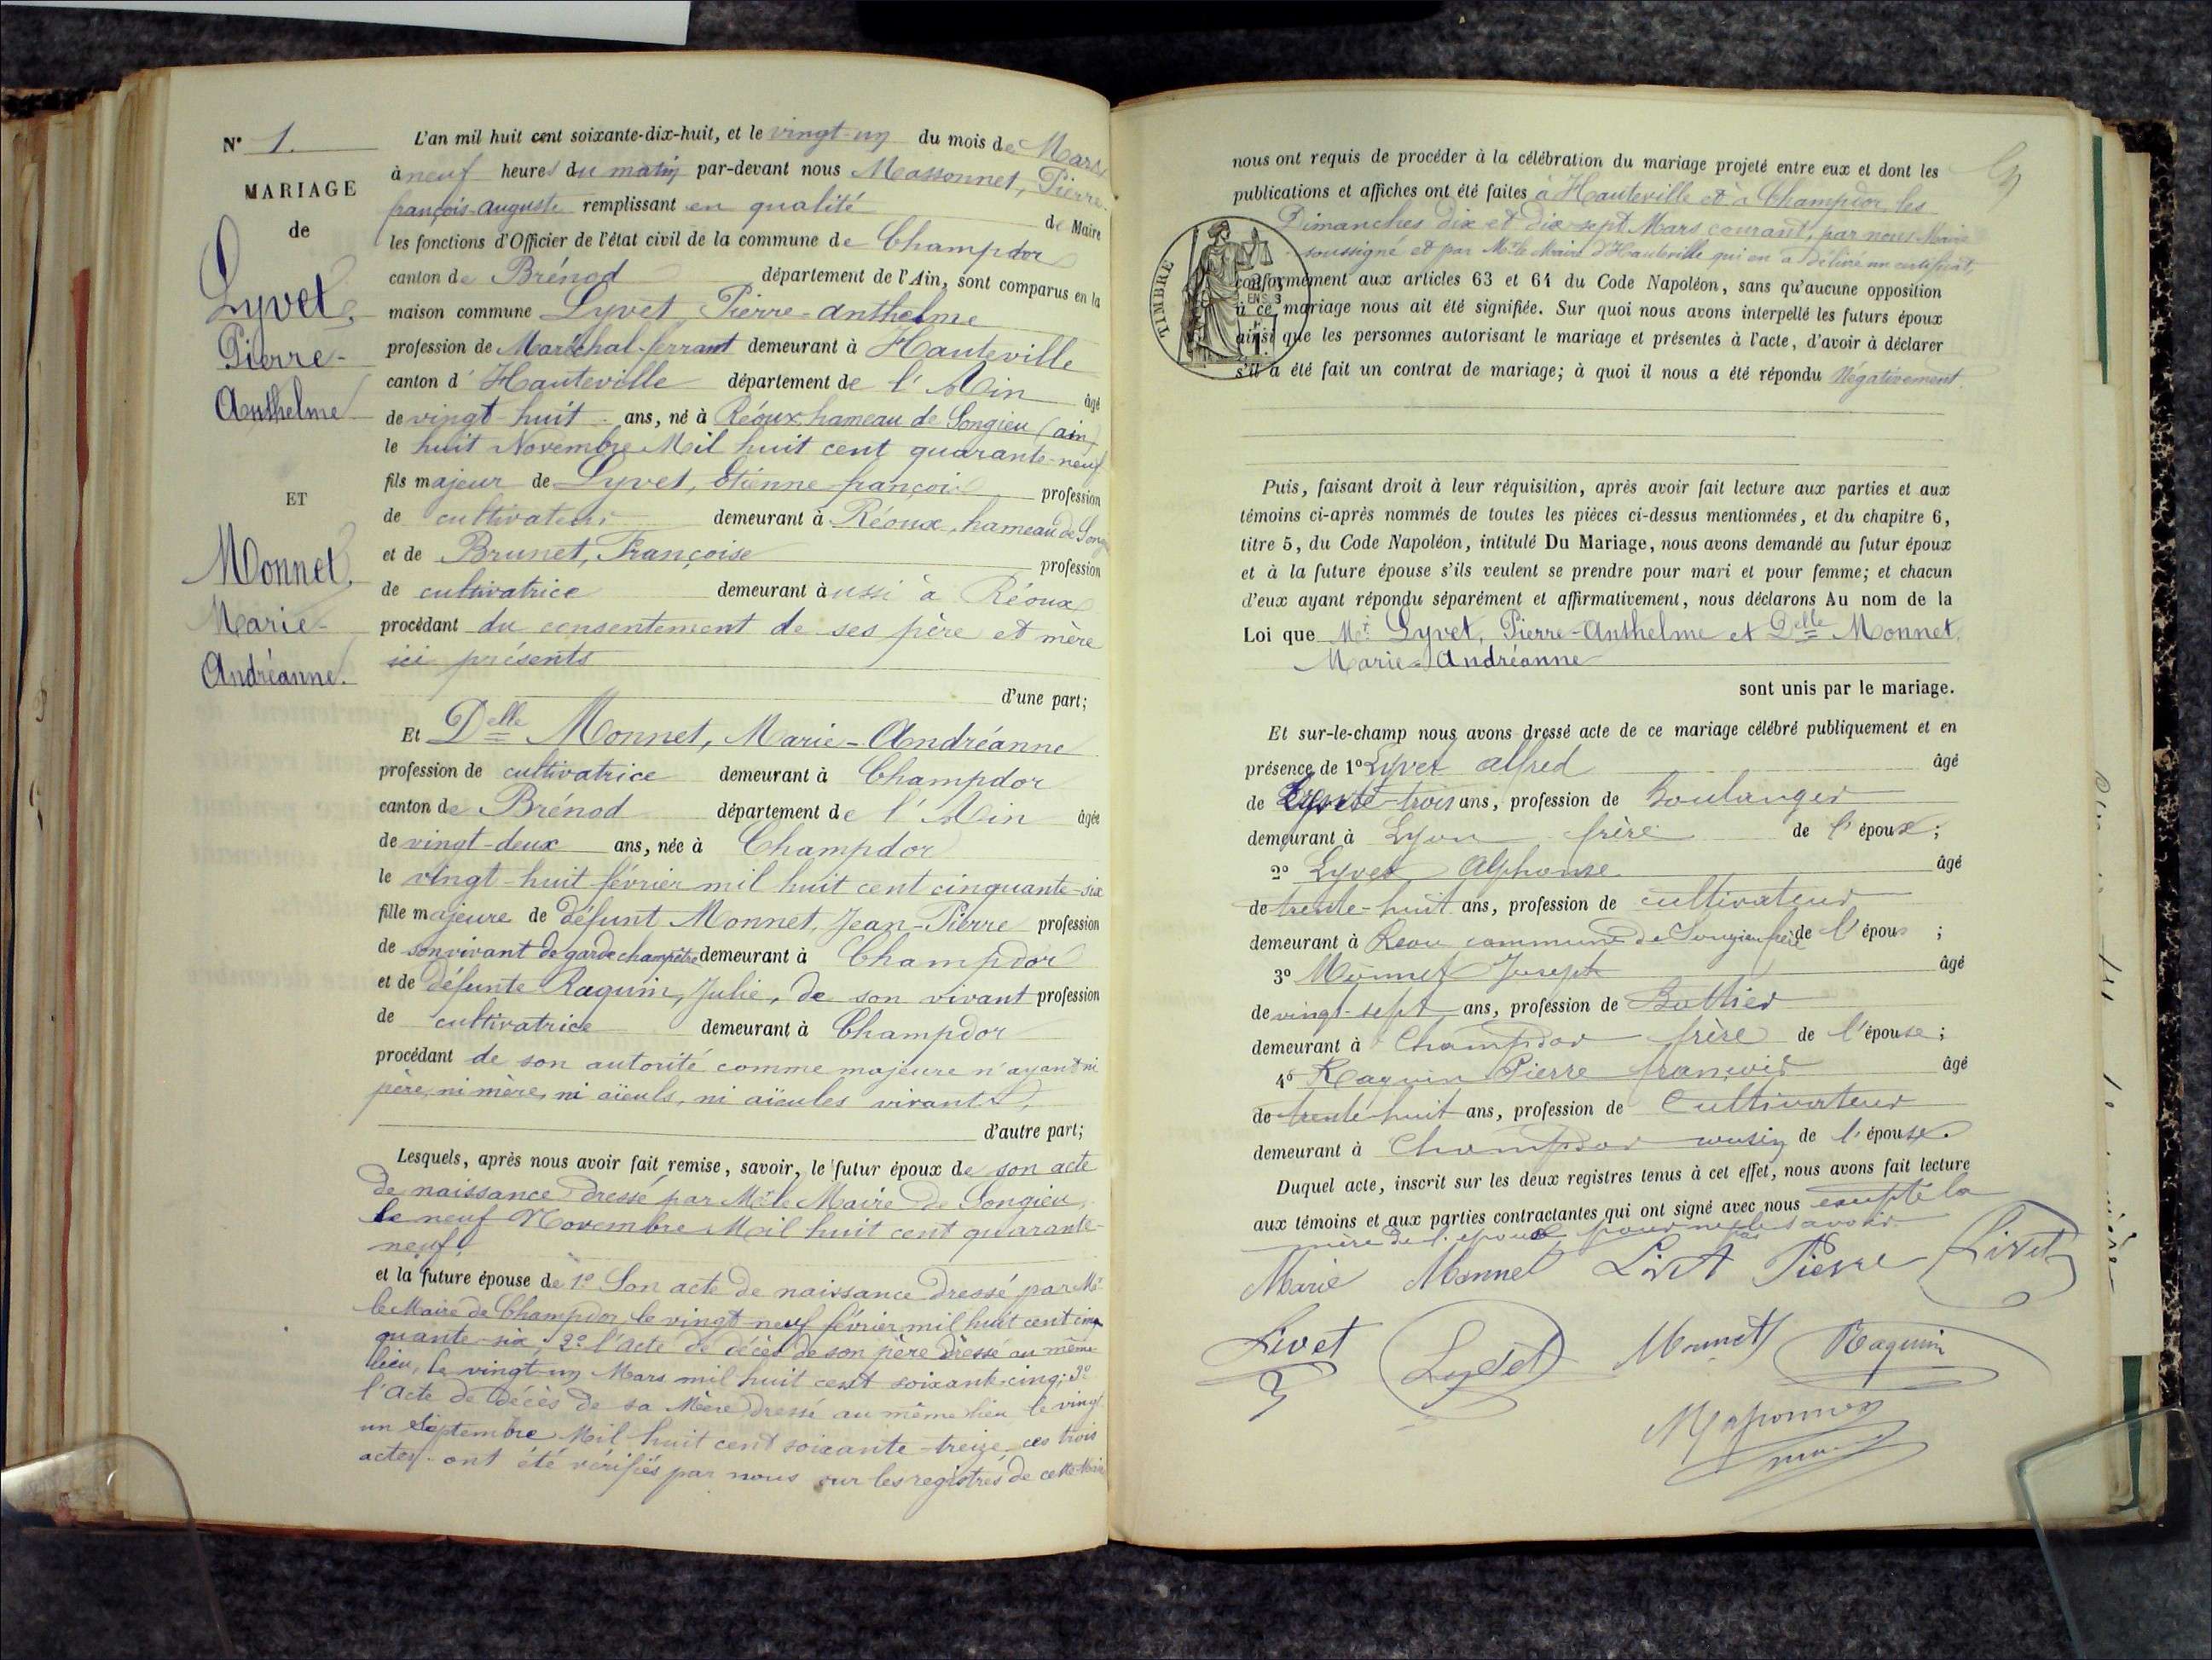 N° 1.
MARIAGE
de
Lyvet,
Pierre-
Anthelme
ET
Monnet,
Marie-
Andréanne.
L'an mil huit cent soixante-dix-huit, et le vingt-un du mois de Mars
à neuf heures du matin par-devant nous Massonnet, Pierre-
françois-auguste remplissant en qualité de Maire
les fonctions d'Officier de l'état civil de la commune de Champdor
canton de Brénod département de l'Ain, sont comparus en la
maison commune Lyvet, Pierre-anthelme
profession de Maréchal-ferrant demeurant à Hauteville
canton d'Hauteville département de l'Ain âgé
de vingt-huit ans, né à Réoux, hameau de Songieu (ain)
le huit Novembre Mil huit cent quarante-neuf
fils majeur de Lyvet, Etienne-françois profession
de cultivateur demeurant à Réoux, hameau de Song
et de Brunet, Françoise profession
de cultivatrice demeurant aussi à Réoux
procédant du consentement de ses père et mère
ici présents
d'une part;
Et Delle Monnet, Marie-Andréanne
profession de cultivatrice demeurant à Champdor
canton de Brénod département de l'Ain âgée
de vingt-deux ans, née à Champdor
le vingt-huit février mil huit cent cinquante-six
fille majeure de défunt Monnet, Jean-Pierre profession
de son vivant de garde champêtre demeurant à Champdor
et de défunte Raquin, Julie, de son vivant profession
de cultivatrice demeurant à Champdor
procédant de son autorité comme majeure n'ayant ni
père, ni mère, ni aïeuls, ni aïeules vivants,
d'autre part;
Lesquels, après nous avoir fait remise, savoir, le futur époux de son acte
de naissance dressé par Mr le Maire de Songieu,
le neuf Novembre Mil huit cent quarante-
neuf.
et la future épouse de 1° Son acte de naissance dressé par Mr
le Maire de Champdor, le vingt-neuf février mil huit cent cin
quante-six; 2° l'acte de décès de son père dressé au même
lieu, le vingt-un Mars mil huit cent soixante-cinq; 3°
l'Acte de décès de sa Mère dressé au même lieu le vingt
un Septembre Mil huit cent soixante-treize, ces trois
actes ont été vérifiés par nous sur les registres de cette Mairie
nous ont requis de procéder à la célébration du mariage projeté entre eux et dont les
publications et affiches ont été faites à Hauteville et à Champdor, les
Dimanches dix et dix-sept Mars courant, par nous Maire
soussigné et par Mr le Maire d'Hauteville qui en a délivré un certificat,
TIMBRE
conformément aux articles 63 et 64 du Code Napoléon, sans qu'aucune opposition
à ce mariage nous ait été signifiée. Sur quoi nous avons interpellé les futurs époux
ainsi que les personnes autorisant le mariage et présentes à l'acte, d'avoir à déclarer
s'il a été fait un contrat de mariage; à quoi il nous a été répondu Négativement.
Puis, faisant droit à leur réquisition, après avoir fait lecture aux parties et aux
témoins ci-après nommés de toutes les pièces ci-dessus mentionnées, et du chapitre 6,
titre 5, du Code Napoléon, intitulé Du Mariage, nous avons demandé au futur époux
et à la future épouse s'ils veulent se prendre pour mari et pour femme; et chacun
d'eux ayant répondu séparément et affirmativement, nous déclarons Au nom de la
Loi que Mr Lyvet, Pierre-Anthelme et Delle Monnet,
Marie-Andréanne
sont unis par le mariage.
Et sur-le-champ nous avons dressé acte de ce mariage célébré publiquement et en
présence de 1° Lyvet alfred âgé
de trente-trois ans, profession de Boulanger
demeurant à Lyon frère de l'époux;
2° Lyvet Alphonse âgé
de trente-huit ans, profession de cultivateur
demeurant à Reou commune de Songieu frère de l'épous ;
3° Monnet Joseph âgé
de vingt-sept ans, profession de Bottier
demeurant à Champdor frère de l'épouse;
4° Raquin Pierre françois âgé
de trente-huit ans, profession de Cultivateur
demeurant à Champdor cousin de l'épouse.
Duquel acte, inscrit sur les deux registres tenus à cet effet, nous avons fait lecture
aux témoins et aux parties contractantes qui ont signé avec nous excepté la
mère de l'époux pour ne pas le savoir.
Marie Monnet Livet Pierre Livet
Livet Lyvet Monnet Raquin
Massonnet